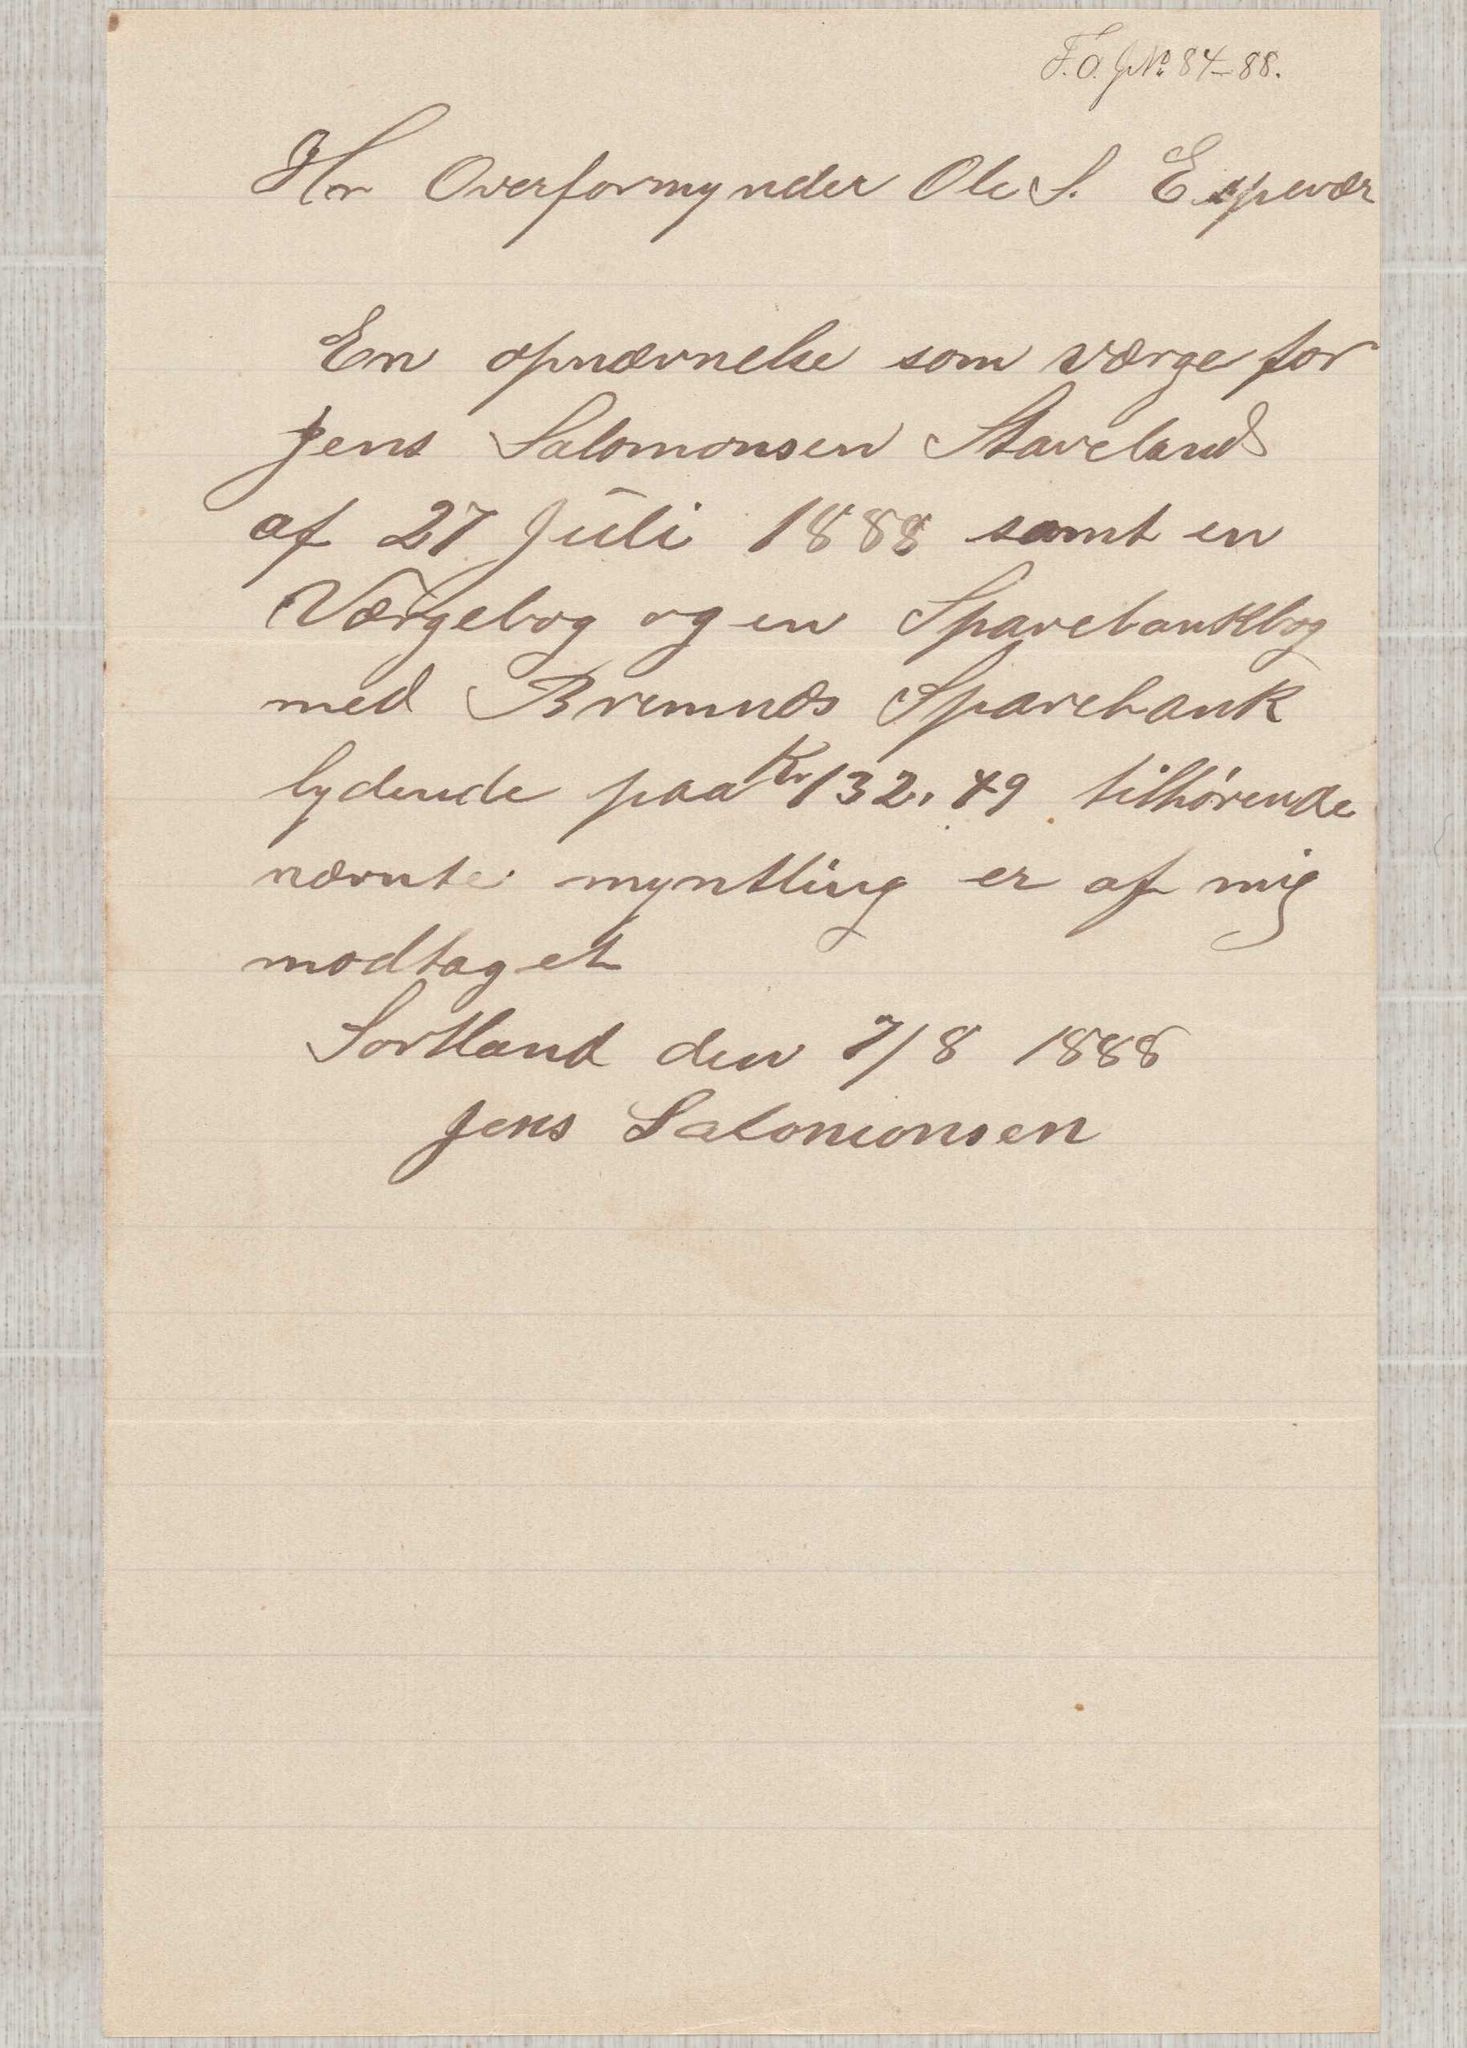 F. O. J№ 84–88.
Hr Overformynder Ole S. Espevær
En opnævnelse som værge for
Jens Salomonsen Staveland
af 27 Juli 1888 samt en
Værgebog og en Sparebankbog
med Bremnæs Sparebank
lydende paa Kr 132.49 tilhørende
nævnte myntling er af mig
modtaget
Sortland den 7/8 1888
Jens Salomonsen